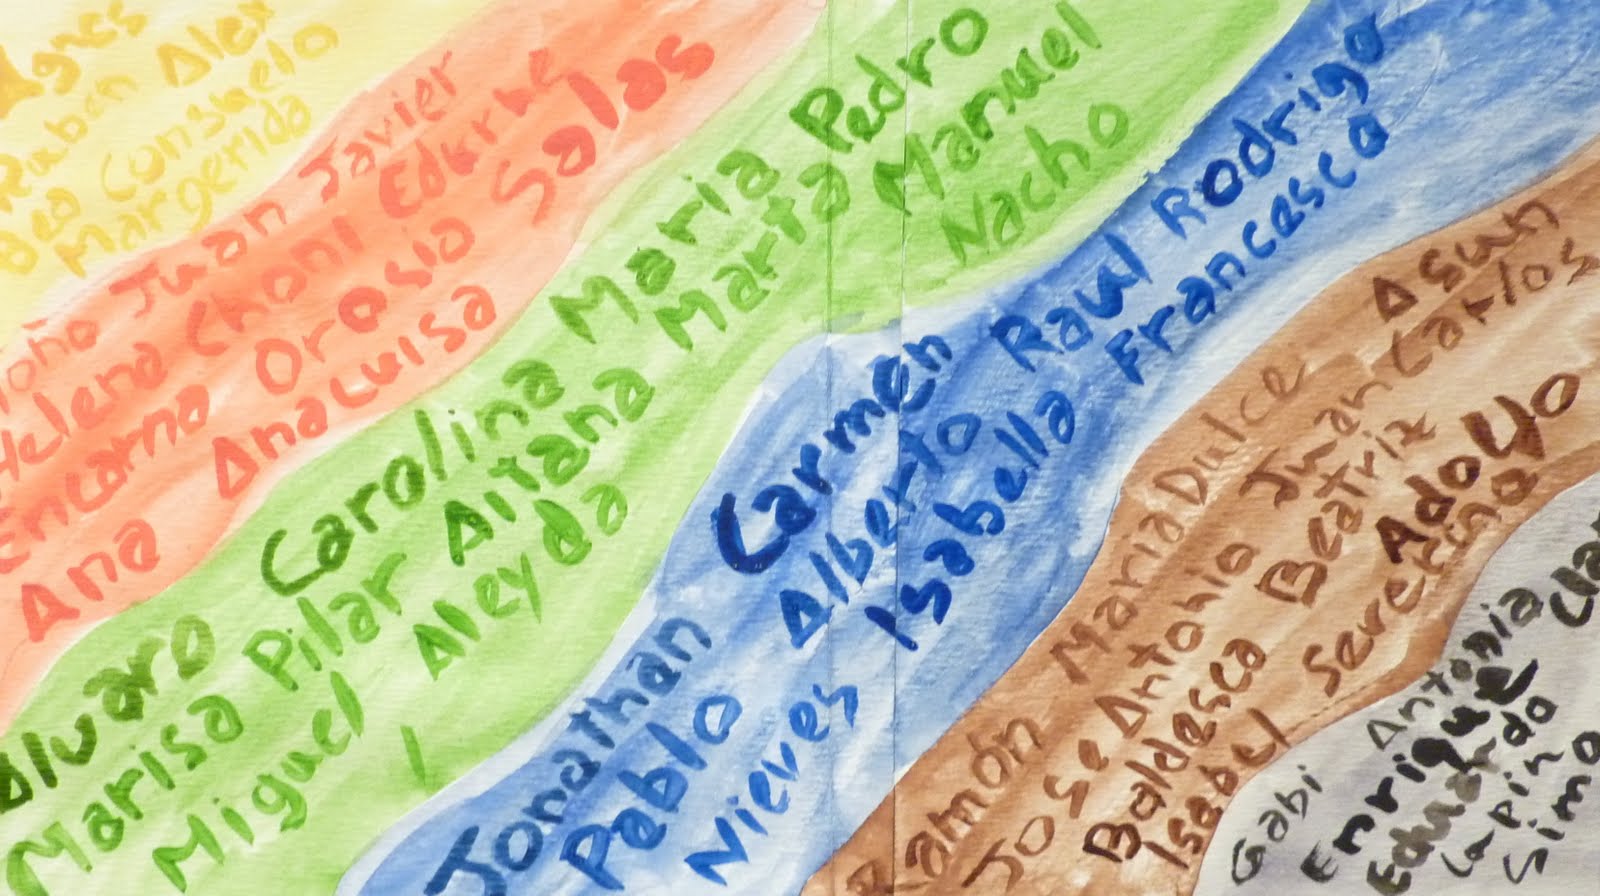 Agnes
Ruben Alex
Bea Consuelo
Margerida
Toño Juan Javier
Helena Choni Edurne
Encarna Orosio Salas
Ana AnaLuisa
Alvaro Carolina Maria Pedro
Marisa Pilar Aitana Marta Manuel
Miguel Aleyda Nacho
Jonathan Carmen Raul Rodrigo
Pablo Alberto Isabella Francesca
Nieves
Ramón MariaDulce Asun
Jose Antonio Juan Carlos
Baldesca Beatriz Adolfo
Isabel
Gabi Antonia
Enrique
Eduardo
Lapin
Simo